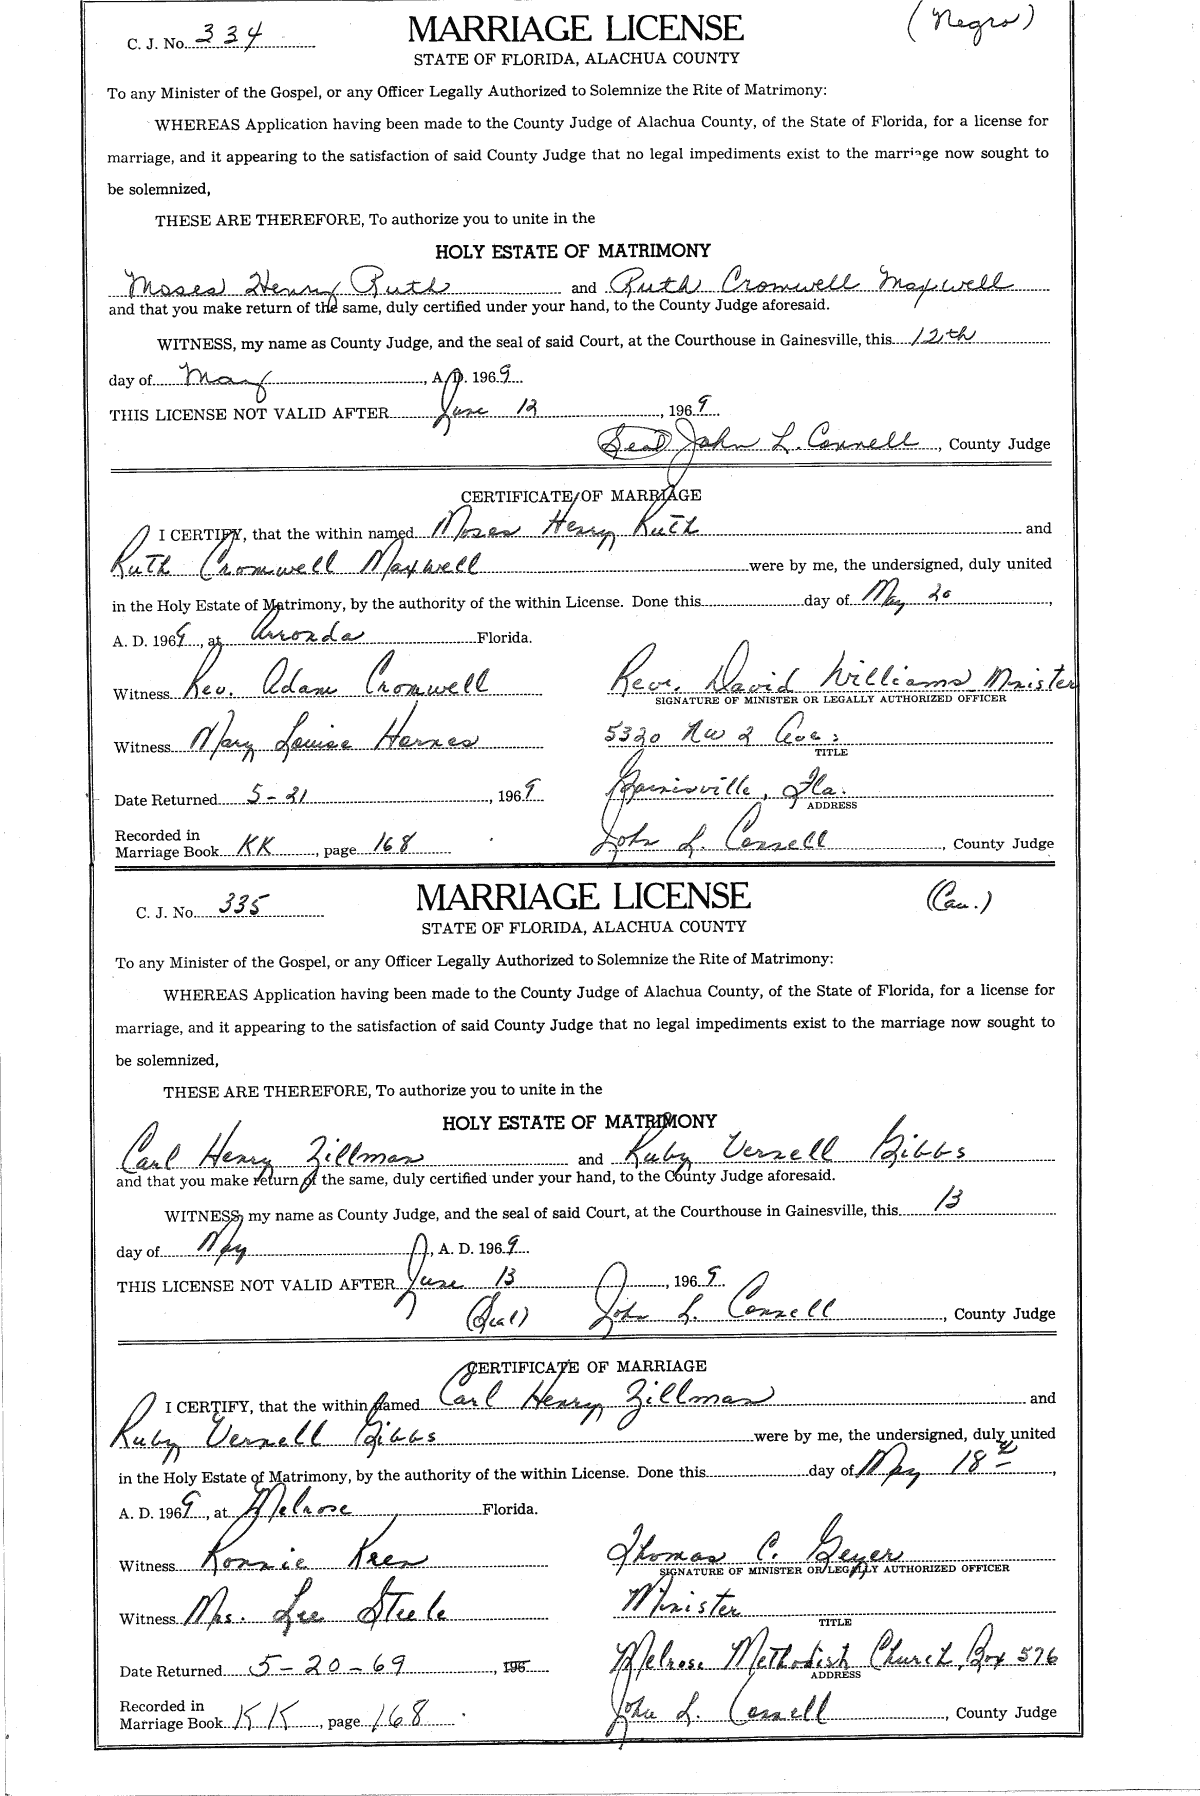 C. J. No. 334 MARRIAGE LICENSE (Negro)
STATE OF FLORIDA, ALACHUA COUNTY
To any Minister of the Gospel, or any Officer Legally Authorized to Solemnize the Rite of Matrimony:
WHEREAS Application having been made to the County Judge of Alachua County, of the State of Florida, for a license for
marriage, and it appearing to the satisfaction of said County Judge that no legal impediments exist to the marriage now sought to
be solemnized,
THESE ARE THEREFORE, To authorize you to unite in the
HOLY ESTATE OF MATRIMONY
Moses Henry Ruth and Ruth Cromwell Maxwell
and that you make return of the same, duly certified under your hand, to the County Judge aforesaid.
WITNESS, my name as County Judge, and the seal of said Court, at the Courthouse in Gainesville, this 12th
day of May, A. D. 1969
THIS LICENSE NOT VALID AFTER June 12, 1969
(Seal) John L. Connell, County Judge
CERTIFICATE OF MARRIAGE
I CERTIFY, that the within named Moses Henry Ruth and
Ruth Cromwell Maxwell were by me, the undersigned, duly united
in the Holy Estate of Matrimony, by the authority of the within License. Done this day of May 20,
A. D. 1969, at Arronda Florida.
Witness Rev. Adam Cromwell Reve. David Williams Minister
SIGNATURE OF MINISTER OR LEGALLY AUTHORIZED OFFICER
Witness Mary Louise Harnes 5320 NW 2 Ave:
TITLE
Date Returned 5-21, 1969 Gainisville, Fla.
ADDRESS
Recorded in
Marriage Book KK, page 168 John L. Connell, County Judge
C. J. No. 335 MARRIAGE LICENSE (Cau.)
STATE OF FLORIDA, ALACHUA COUNTY
To any Minister of the Gospel, or any Officer Legally Authorized to Solemnize the Rite of Matrimony:
WHEREAS Application having been made to the County Judge of Alachua County, of the State of Florida, for a license for
marriage, and it appearing to the satisfaction of said County Judge that no legal impediments exist to the marriage now sought to
be solemnized,
THESE ARE THEREFORE, To authorize you to unite in the
HOLY ESTATE OF MATRIMONY
Carl Henry Zillman and Ruby Vernell Gibbs
and that you make return of the same, duly certified under your hand, to the County Judge aforesaid.
WITNESS, my name as County Judge, and the seal of said Court, at the Courthouse in Gainesville, this 13
day of May, A. D. 1969
THIS LICENSE NOT VALID AFTER June 13, 1969
(Seal) John L. Connell, County Judge
CERTIFICATE OF MARRIAGE
I CERTIFY, that the within named Carl Henry Zillman and
Ruby Vernell Gibbs were by me, the undersigned, duly united
in the Holy Estate of Matrimony, by the authority of the within License. Done this day of May 18th,
A. D. 1969, at Melrose Florida.
Witness Ronnie Kren Thomas C. Geyer
SIGNATURE OF MINISTER OR LEGALLY AUTHORIZED OFFICER
Witness Mrs. Lee Steele Minister
TITLE
Date Returned 5-20-69, 196 Melrose Methodish Church, Box 576
ADDRESS
Recorded in
Marriage Book KK, page 168 John L. Connell, County Judge